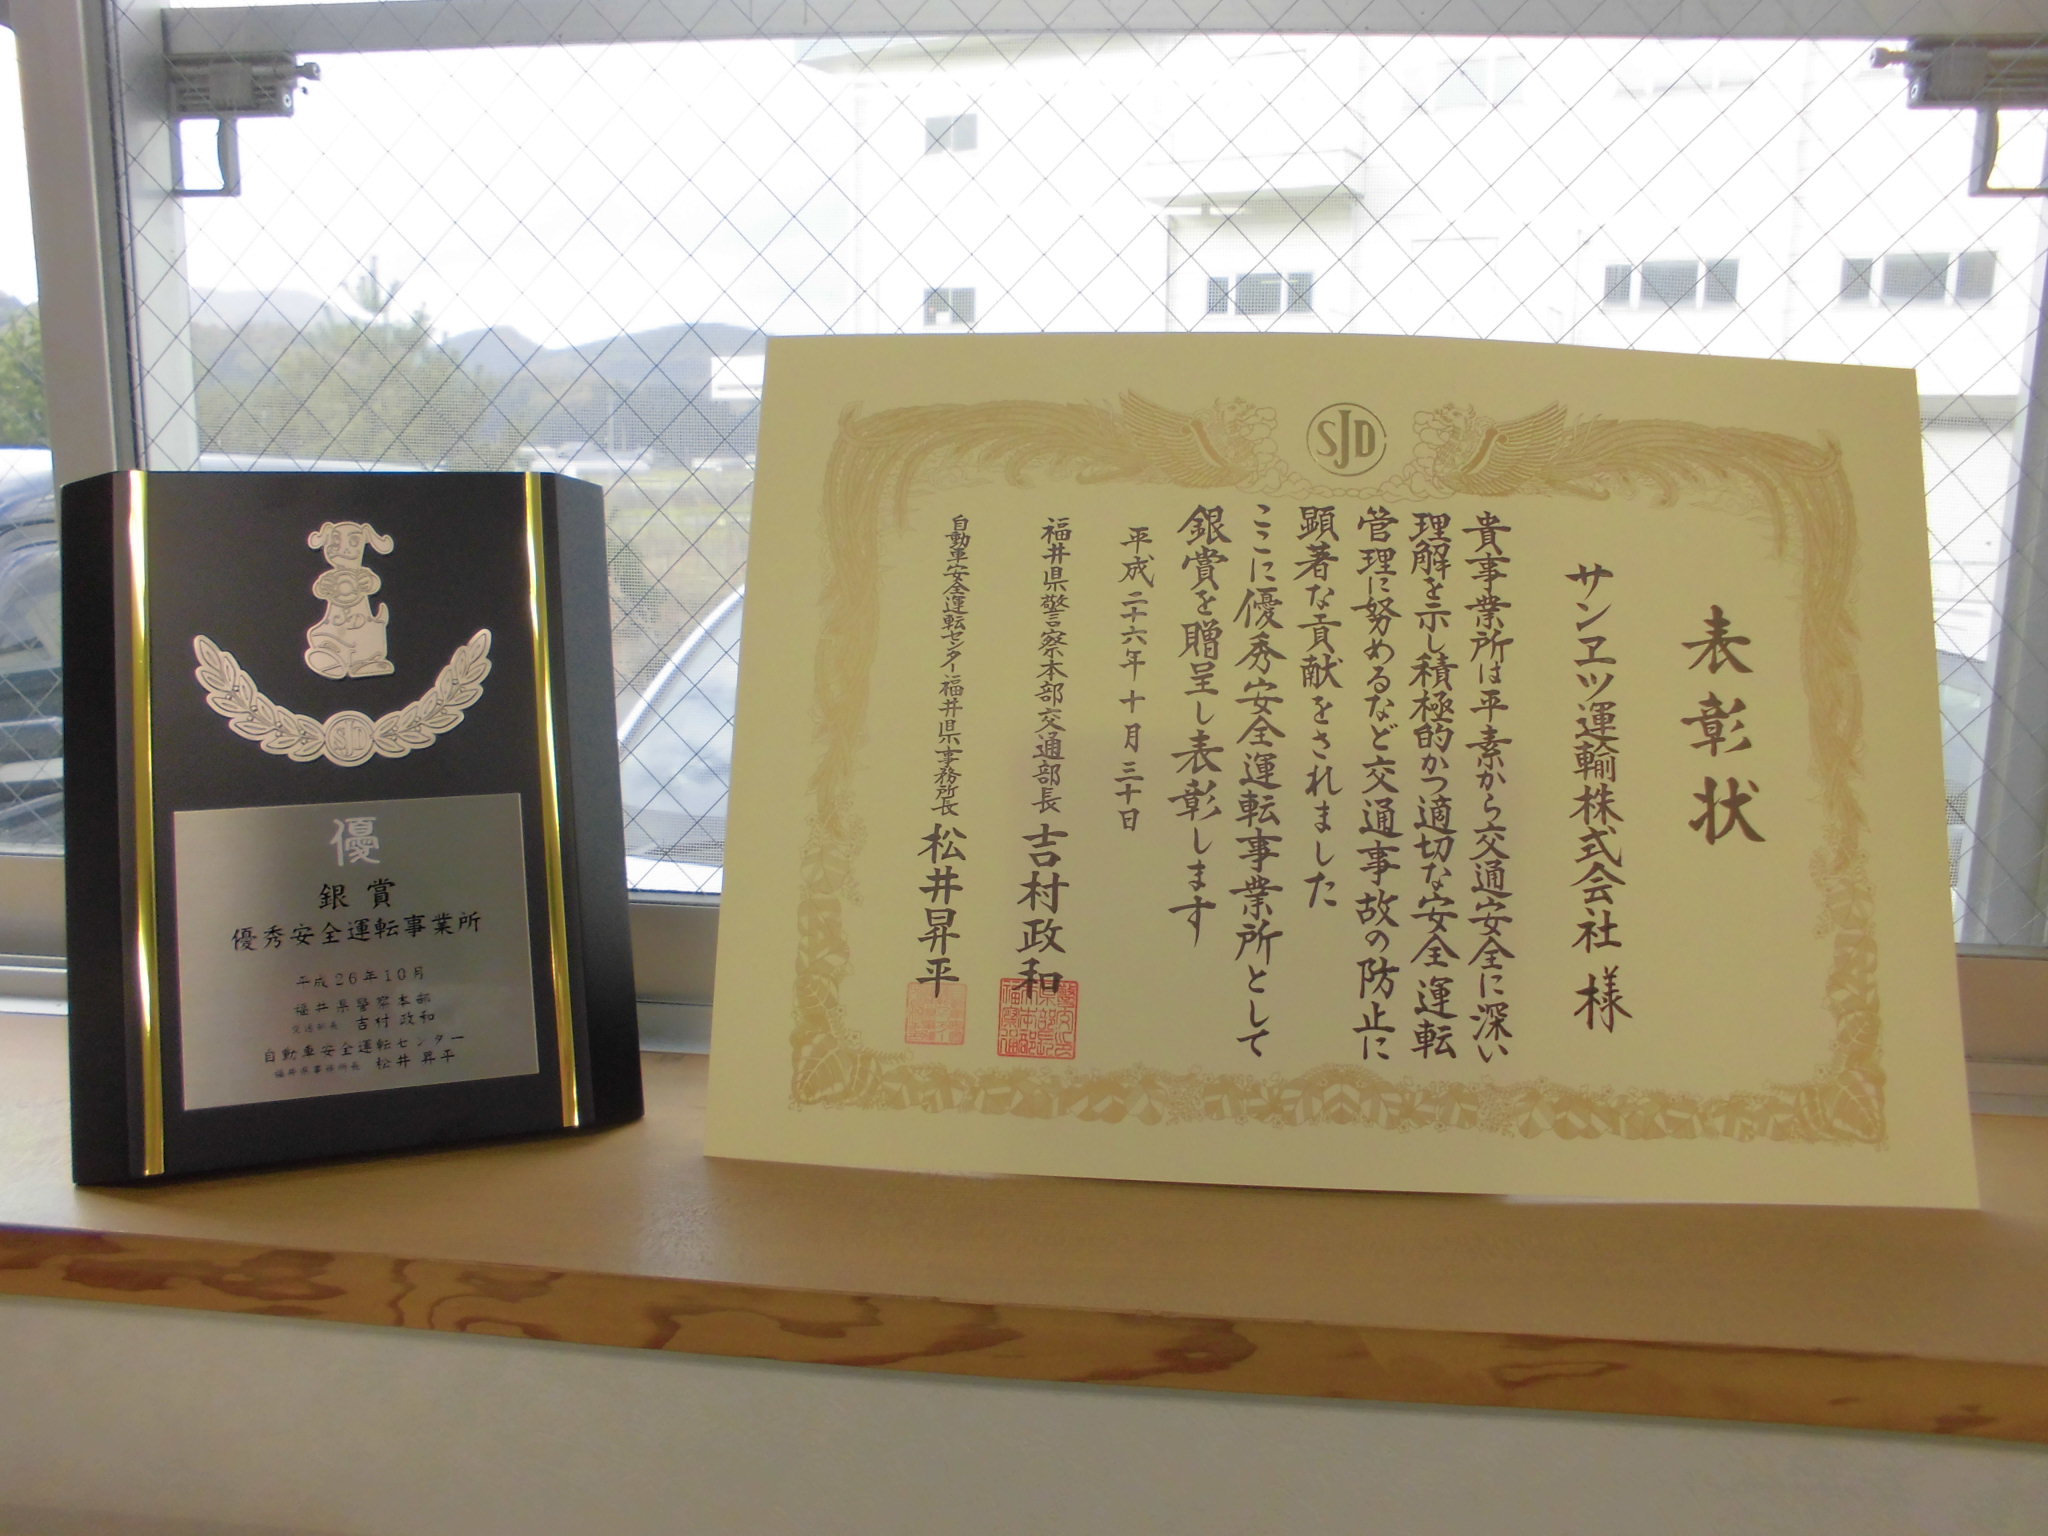 SJD
表彰状
サンヱツ運輸株式会社 様
貴事業所は平素から交通安全に深い
理解を示し積極的かつ適切な安全運転
管理に努めるなど交通事故の防止に
顕著な貢献をされました
ここに優秀安全運転事業所として
銀賞を贈呈し表彰します
平成二十六年十月三十日
福井県警察本部交通部長 吉村政和
自動車安全運転センター福井県事務所長 松井昇平
SJD
優
銀賞
優秀安全運転事業所
平成26年10月
福井県警察本部
交通部長 吉村 政和
自動車安全運転センター
福井県事務所長 松井 昇平